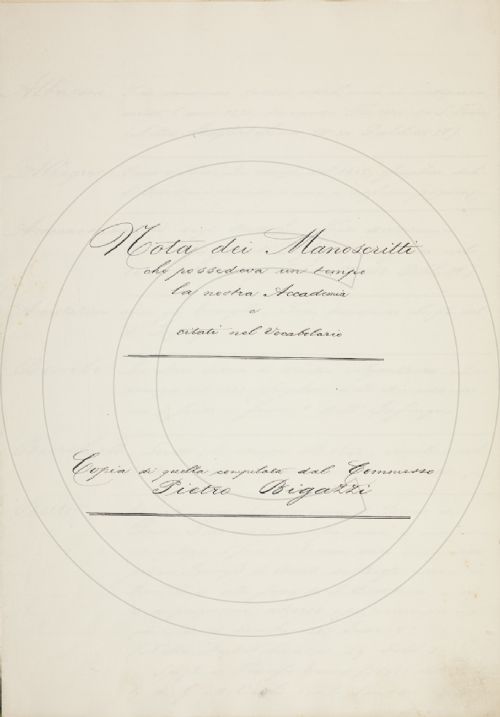 Nota dei Manoscritti
che possedeva un tempo
la nostra Accademia
e
citati nel Vocabolario
Copia di quella compilata dal Commesso
Pietro Bigazzi